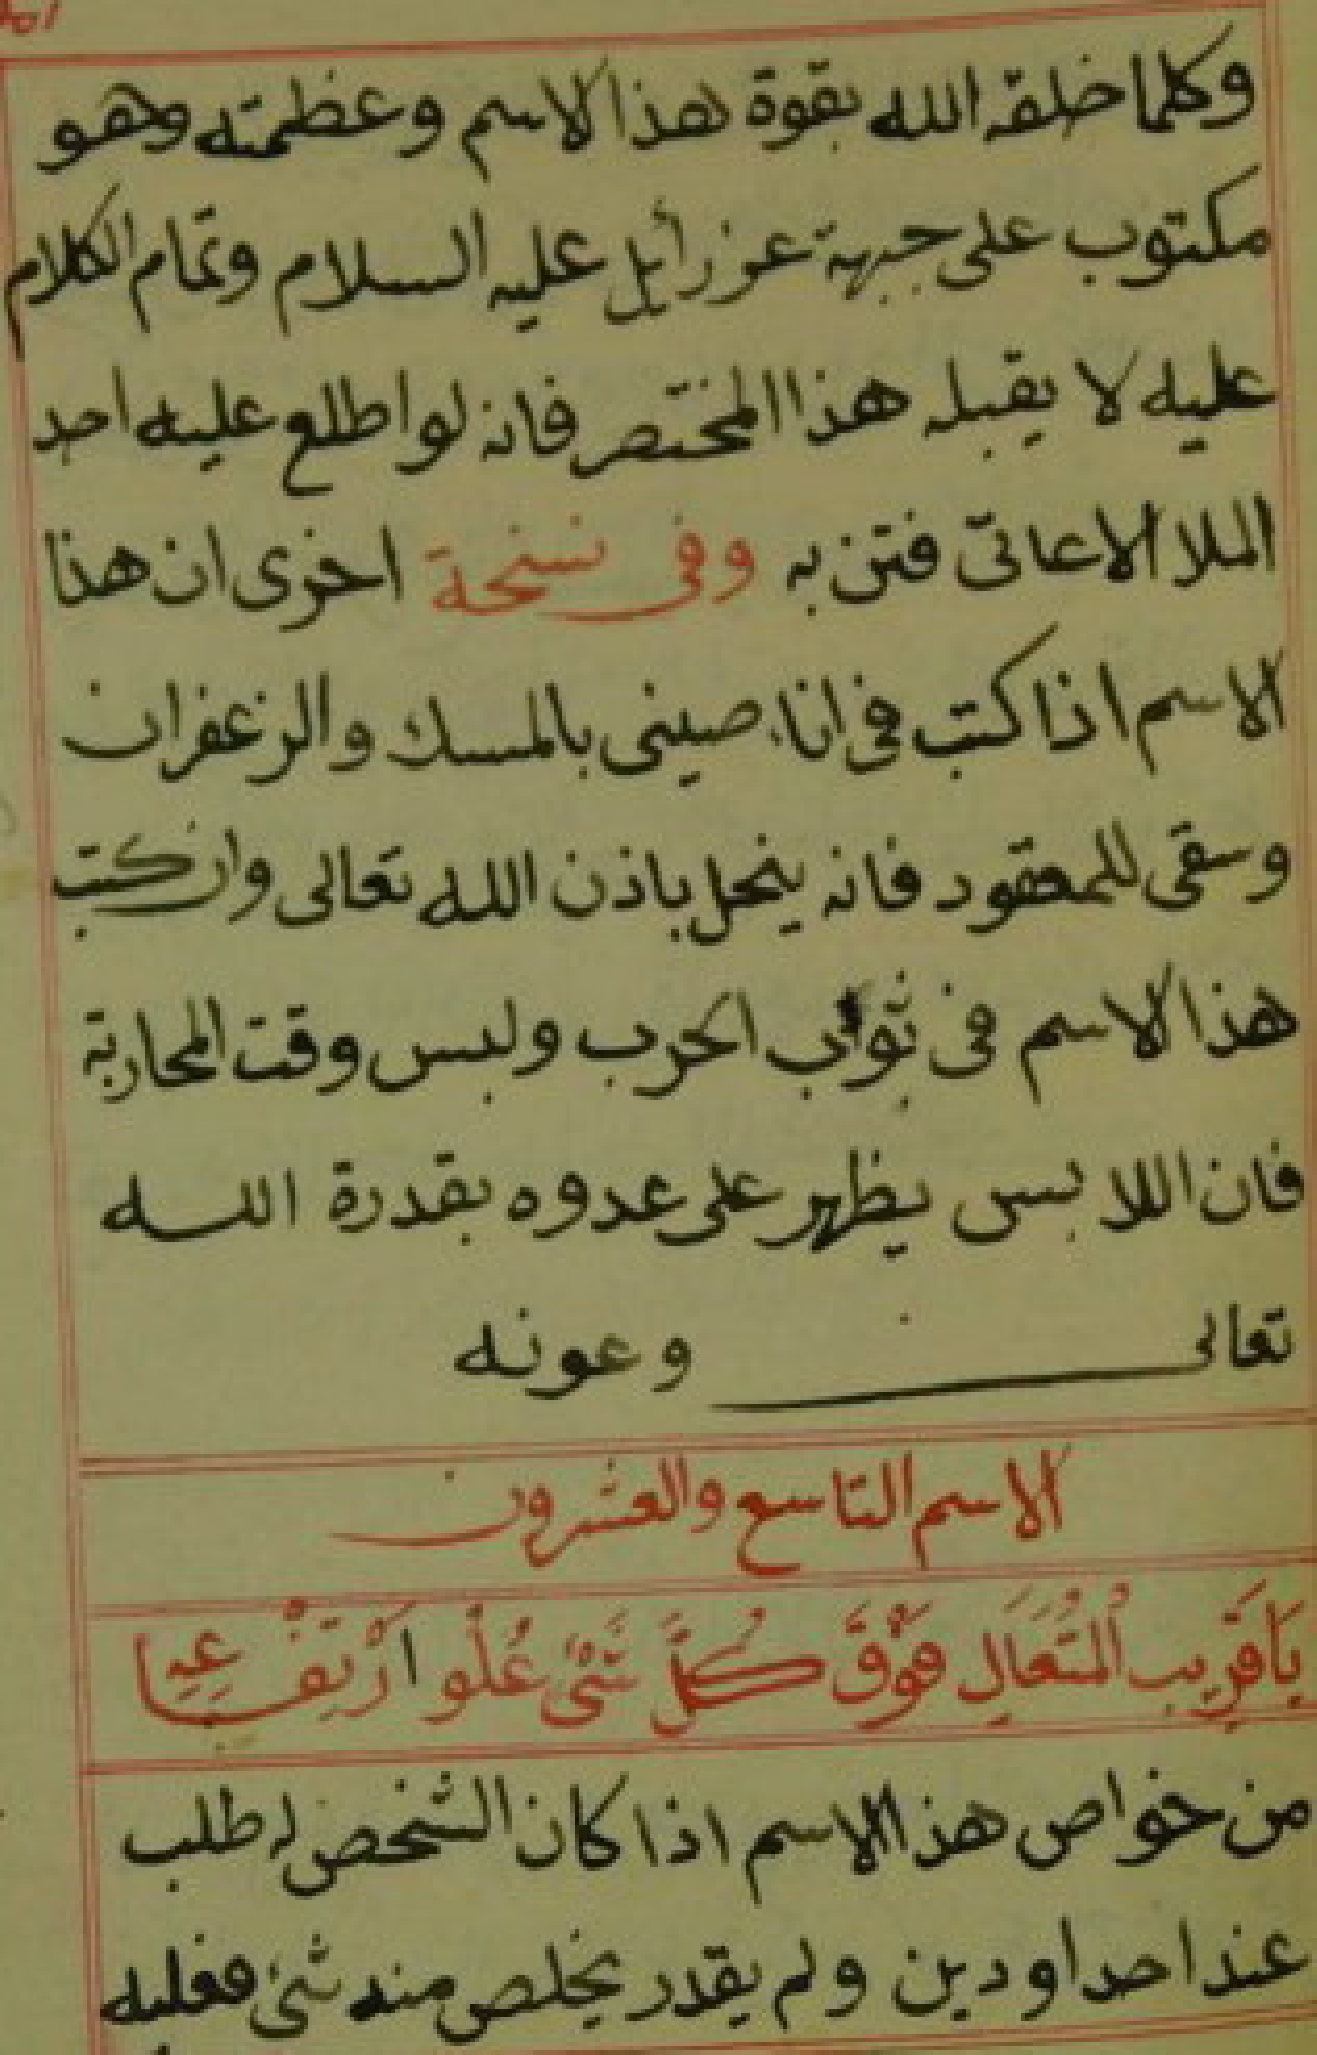 وكلما خلقه الله بقوة هذا الاسم وعظمته وهو
مكتوب على جبهة عزرأيل عليه السلام وتمام الكلام
عليه لا يقبله هذا المختصر فانه لو اطلع عليه احد
الملا الاعاتى فتن به وفى نسخة اخرى ان هذا
الاسم اذا كتب فى اناء صينى بالمسك والزعفران
وسقى للمعقود فانه ينحل باذن الله تعالى وان كتب
هذا الاسم فى ثواب الحرب ولبس وقت المحاربة
فان اللابس يظهر على عدوه بقدرة الله
تعالى وعونه
الاسم التاسع والعشرون
يَا قَرِيب الْمُتَعَالِ فَوْقَ كُلَّ شَىْءٍ عُلُوا اَرْتِفَاعِهِ
من خواص هذا الاسم اذا كان الشخص له طلب
عند احد او دين ولم يقدر يخلص منه شئ فعليه